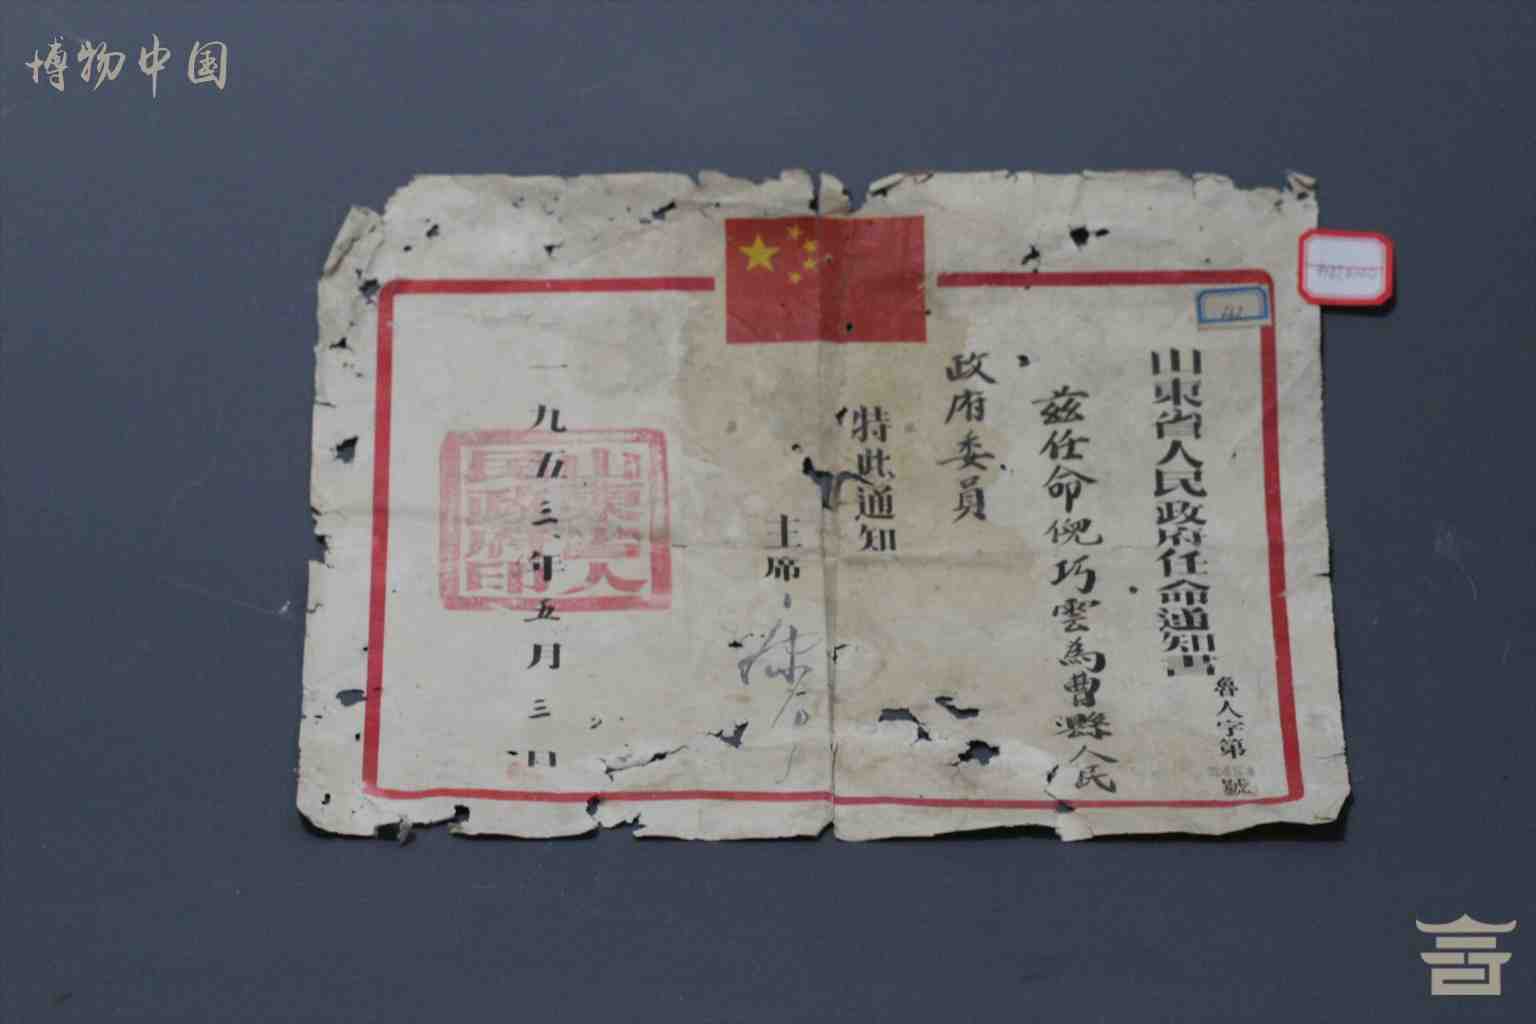 博物中国
山東省人民政府任命通知書
魯人字第
號
茲任命倪巧雲為曹縣人民
政府委員
特此通知
主席
一九五三年五月三日
山東省人
民政府印